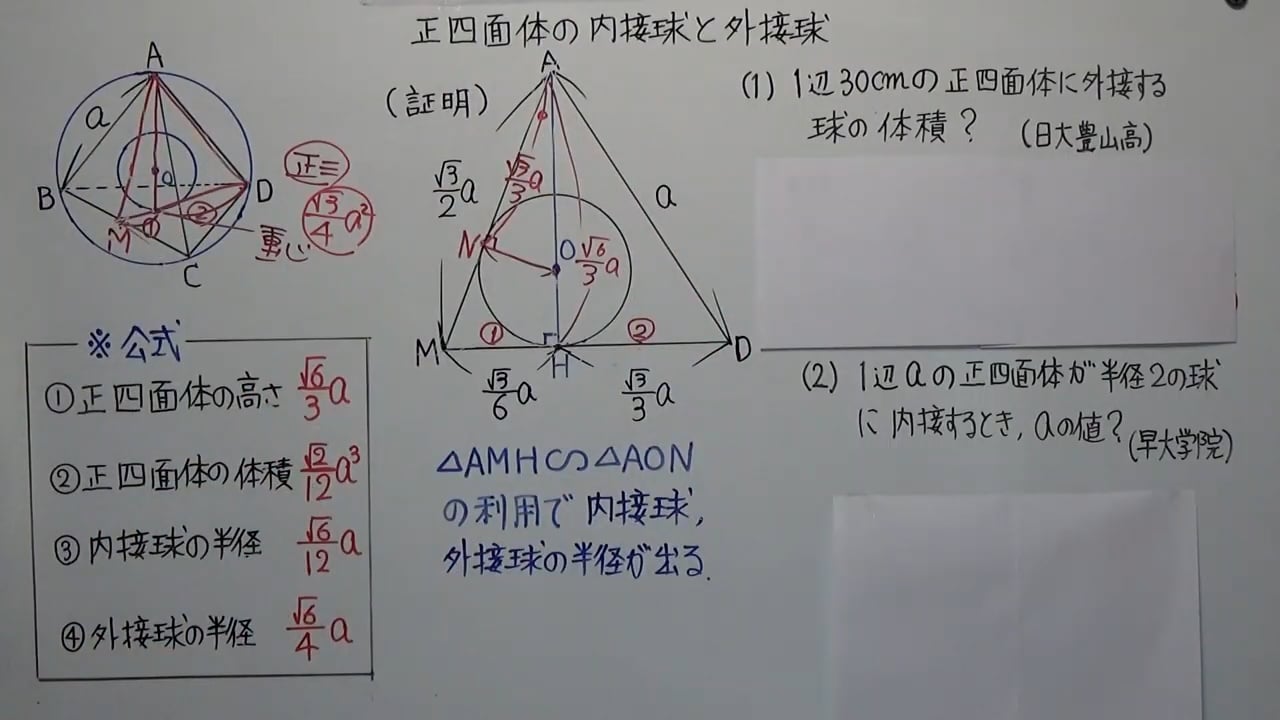 正四面体の内接球と外接球
A
a
B
D
M
C
O
①
②
重心
正三
√3/4 a²
※公式
①正四面体の高さ √6/3 a
②正四面体の体積 √2/12 a³
③内接球の半径 √6/12 a
④外接球の半径 √6/4 a
(証明)
A
√3/2 a
√3/3 a
a
N
O
√6/3 a
①
②
M
H
D
√3/6 a
√3/3 a
△AMH∽△AON
の利用で内接球,
外接球の半径が出る.
(1) 1辺30cmの正四面体に外接する
球の体積? (日大豊山高)
(2) 1辺aの正四面体が半径2の球
に内接するとき, aの値? (早大学院)